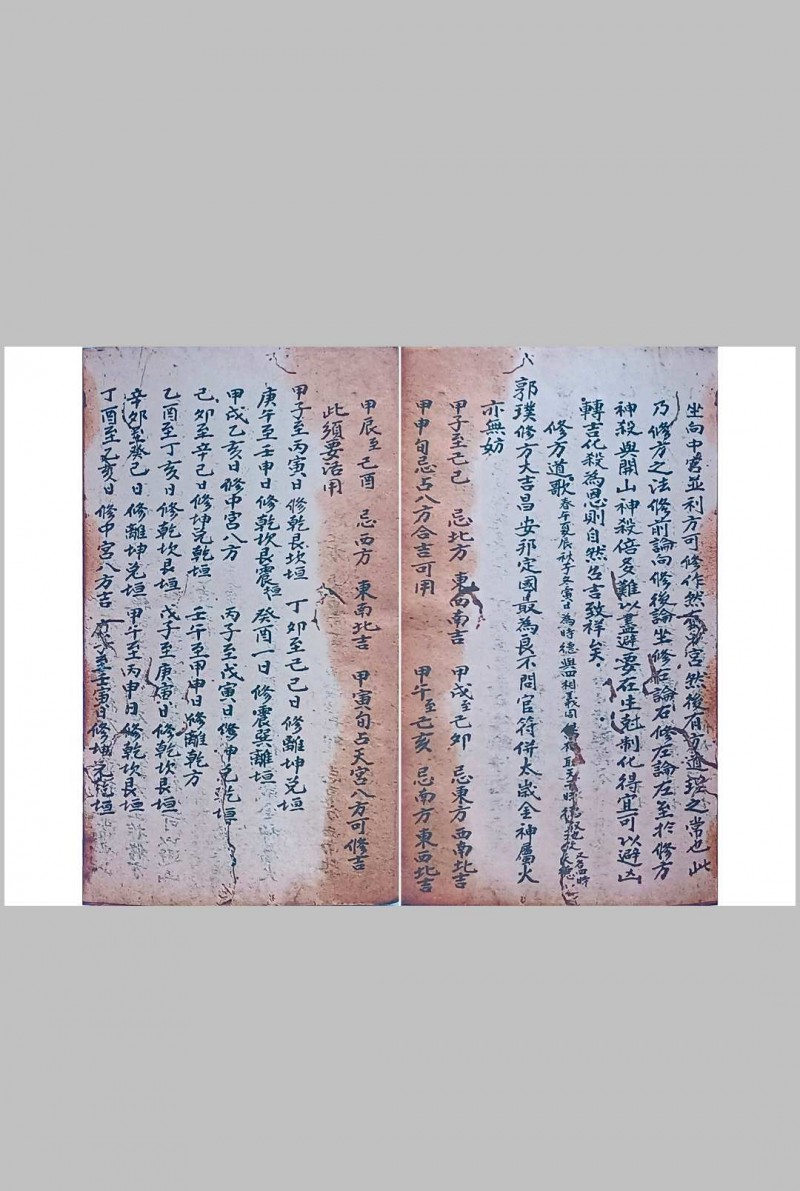 坐向中宮並利方可修作然宮然後有方道理之常也此
乃修方之法修前論向修後論坐修右論右修左論左至於修方
神殺與開山神殺倍多難以盡避要在生尅制化得宜可以避凶
轉吉化殺為恩則自然召吉致祥矣
修方道歌 春午夏辰秋子冬寅日為時德與四相義同
郭璞修方大吉昌 安邦定國最為良 不問官符併太歲 金神屬火
亦無妨
甲子至己巳 忌北方 東西南吉 甲戌至己卯 忌東方 西南北吉
甲申旬忌占八方合吉可用 甲午至己亥 忌南方 東西北吉
甲辰至己酉 忌西方 東南北吉 甲寅旬占天宮八方可修吉
此須要活用
甲子至丙寅日 修乾艮坎垣 丁卯至己巳日 修離坤兌垣
庚午至壬申日 修乾坎艮震垣 癸酉一日 修震巽離垣
甲戌乙亥日 修中宮八方 丙子至戊寅日 修坤兌乾垣
己卯至辛巳日 修坤兌乾垣 壬午至甲申日 修離乾方
乙酉至丁亥日 修乾坎艮垣 戊子至庚寅日 修乾坎艮垣
辛卯至癸巳日 修離坤兌垣 甲午至丙申日 修乾坎艮垣
丁酉至己亥日 修中宮八方吉 至壬寅日 修坤兌乾垣